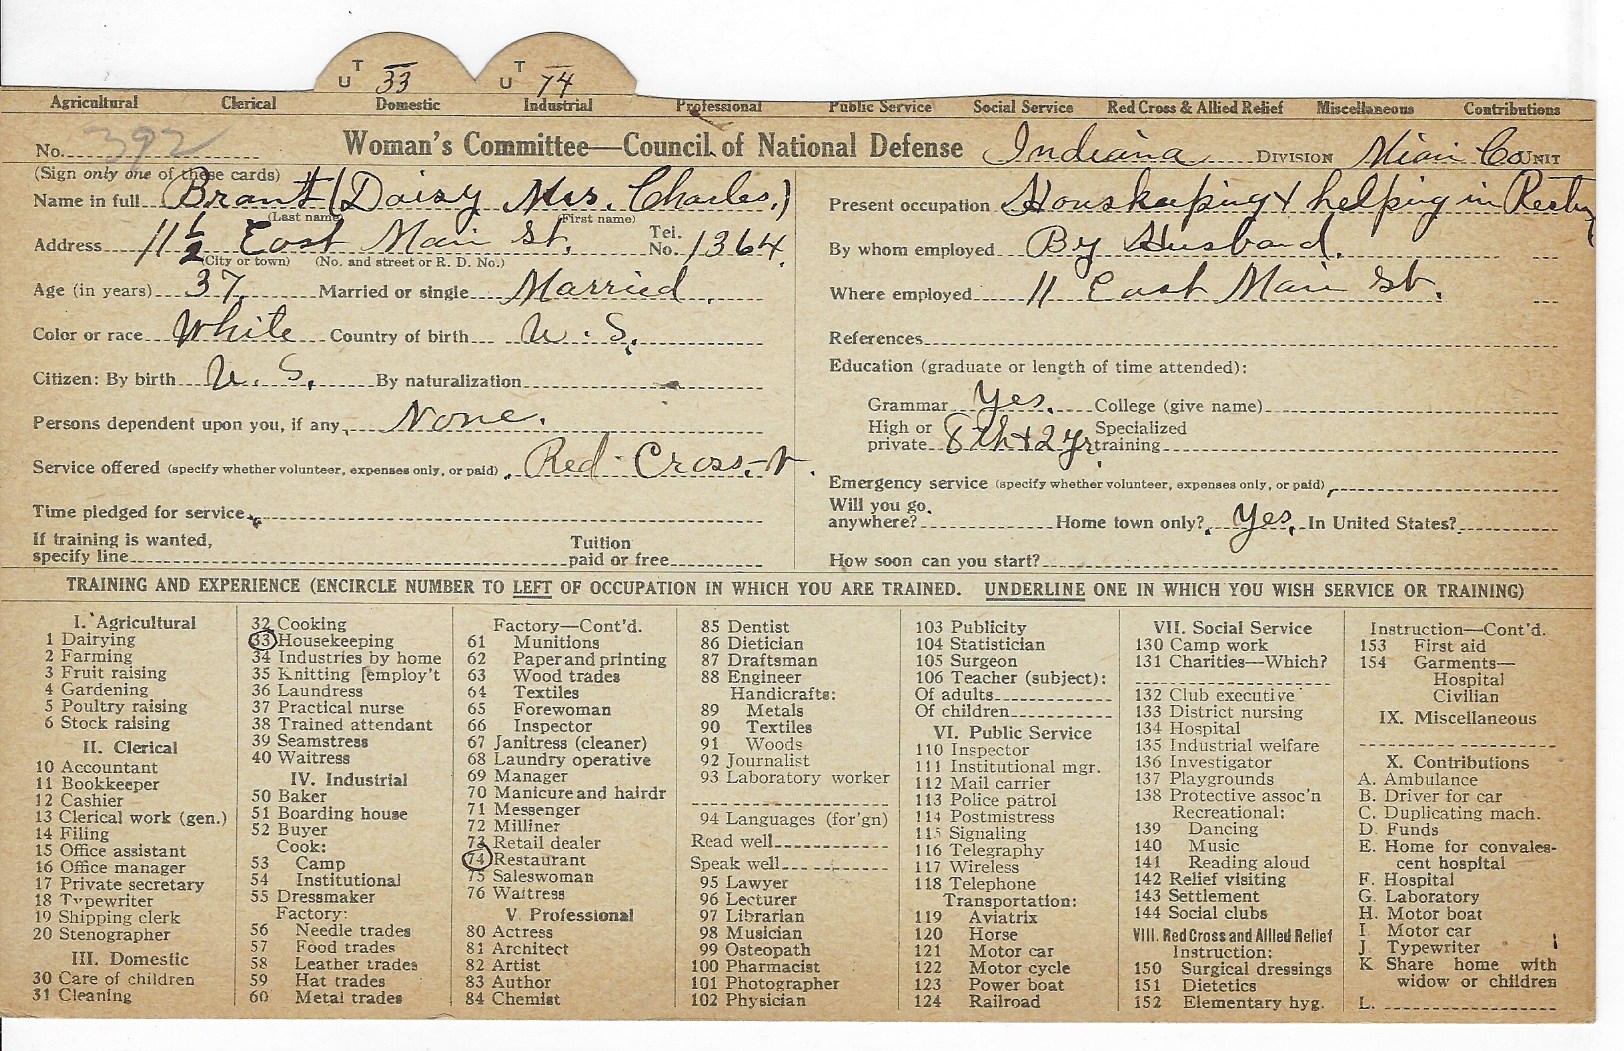 T T
U 33 U 74
Agricultural Clerical Domestic Industrial Professional Public Service Social Service Red Cross & Allied Relief Miscellaneous Contributions
No. 392 Woman's Committee—Council of National Defense Indiana DIVISION Miami Co. UNIT
(Sign only one of these cards)
Name in full Brant (Daisy Mrs. Charles.)
(Last name) (First name)
Address 11 1/2 East Main St. Tel. No. 1364.
(City or town) (No. and street or R. D. No.)
Age (in years) 37 Married or single Married.
Color or race White Country of birth U. S.
Citizen: By birth U. S. By naturalization
Persons dependent upon you, if any, None.
Service offered (specify whether volunteer, expenses only, or paid) Red Cross.-V.
Time pledged for service
If training is wanted, specify line Tuition paid or free
Present occupation Houskeeping & helping in
By whom employed By Husband.
Where employed 11 East Main St.
References
Education (graduate or length of time attended):
Grammar Yes. College (give name)
High or private 8th & 2 yr. Specialized training
Emergency service (specify whether volunteer, expenses only, or paid)
Will you go anywhere? Home town only? Yes. In United States?
How soon can you start?
TRAINING AND EXPERIENCE (ENCIRCLE NUMBER TO LEFT OF OCCUPATION IN WHICH YOU ARE TRAINED. UNDERLINE ONE IN WHICH YOU WISH SERVICE OR TRAINING)
I. Agricultural
1 Dairying
2 Farming
3 Fruit raising
4 Gardening
5 Poultry raising
6 Stock raising
II. Clerical
10 Accountant
11 Bookkeeper
12 Cashier
13 Clerical work (gen.)
14 Filing
15 Office assistant
16 Office manager
17 Private secretary
18 Typewriter
19 Shipping clerk
20 Stenographer
III. Domestic
30 Care of children
31 Cleaning
32 Cooking
33 Housekeeping
34 Industries by home
35 Knitting [employ't
36 Laundress
37 Practical nurse
38 Trained attendant
39 Seamstress
40 Waitress
IV. Industrial
50 Baker
51 Boarding house
52 Buyer
Cook:
53 Camp
54 Institutional
55 Dressmaker
Factory:
56 Needle trades
57 Food trades
58 Leather trades
59 Hat trades
60 Metal trades
Factory—Cont'd.
61 Munitions
62 Paper and printing
63 Wood trades
64 Textiles
65 Forewoman
66 Inspector
67 Janitress (cleaner)
68 Laundry operative
69 Manager
70 Manicure and hairdr
71 Messenger
72 Milliner
73 Retail dealer
74 Restaurant
75 Saleswoman
76 Waitress
V. Professional
80 Actress
81 Architect
82 Artist
83 Author
84 Chemist
85 Dentist
86 Dietician
87 Draftsman
88 Engineer
Handicrafts:
89 Metals
90 Textiles
91 Woods
92 Journalist
93 Laboratory worker
94 Languages (for'gn)
Read well
Speak well
95 Lawyer
96 Lecturer
97 Librarian
98 Musician
99 Osteopath
100 Pharmacist
101 Photographer
102 Physician
103 Publicity
104 Statistician
105 Surgeon
106 Teacher (subject):
Of adults
Of children
VI. Public Service
110 Inspector
111 Institutional mgr.
112 Mail carrier
113 Police patrol
114 Postmistress
115 Signaling
116 Telegraphy
117 Wireless
118 Telephone
Transportation:
119 Aviatrix
120 Horse
121 Motor car
122 Motor cycle
123 Power boat
124 Railroad
VII. Social Service
130 Camp work
131 Charities—Which?
132 Club executive
133 District nursing
134 Hospital
135 Industrial welfare
136 Investigator
137 Playgrounds
138 Protective assoc'n
Recreational:
139 Dancing
140 Music
141 Reading aloud
142 Relief visiting
143 Settlement
144 Social clubs
VIII. Red Cross and Allied Relief
Instruction:
150 Surgical dressings
151 Dietetics
152 Elementary hyg.
Instruction—Cont'd.
153 First aid
154 Garments—
Hospital
Civilian
IX. Miscellaneous
X. Contributions
A. Ambulance
B. Driver for car
C. Duplicating mach.
D. Funds
E. Home for convales-
cent hospital
F. Hospital
G. Laboratory
H. Motor boat
I. Motor car
J. Typewriter
K Share home with
widow or children
L.